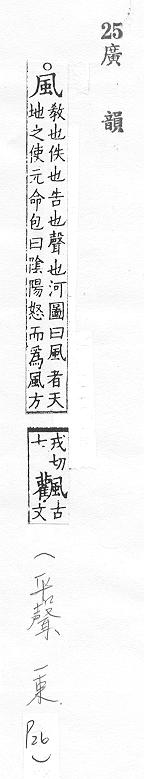 25廣韻
○風
教也佚也告也聲也河圖曰風者天
地之使元命包曰陰陽怒而爲風方
戎切
十
飌
古
文
(平聲 一東. P26)